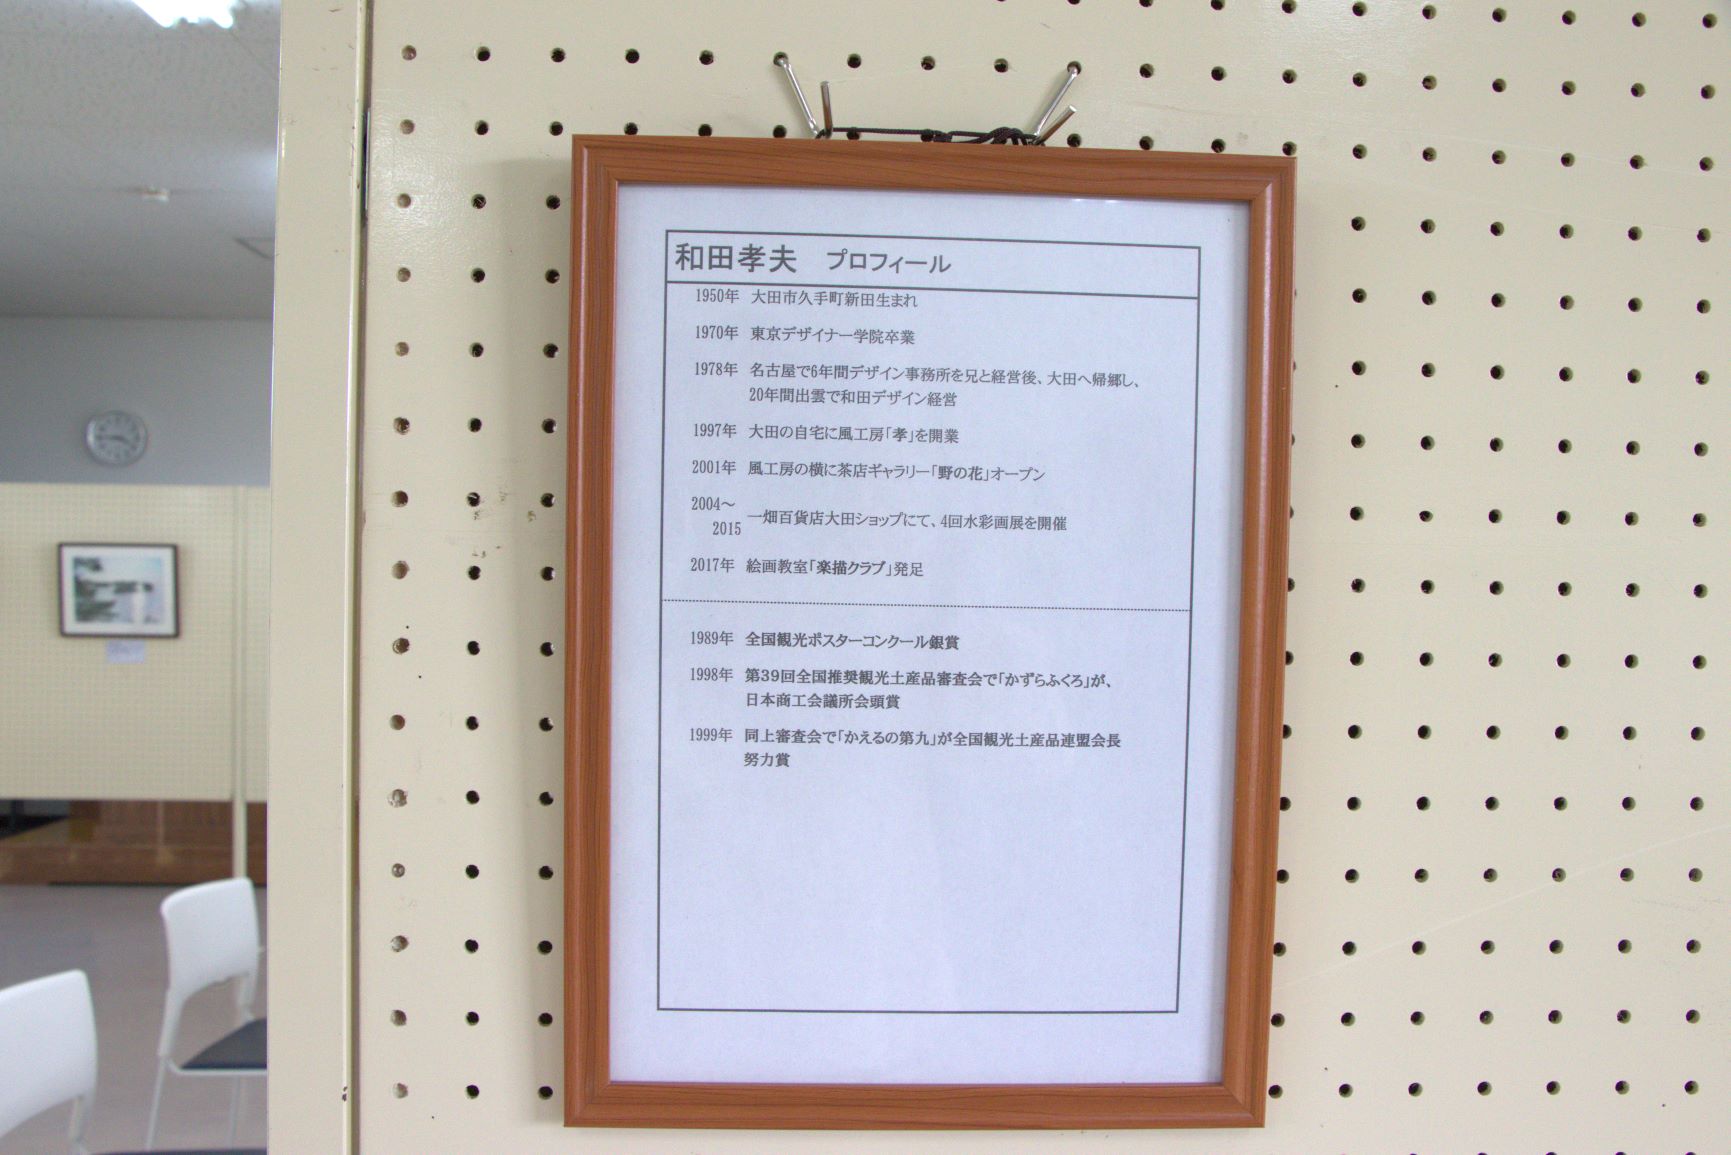 和田孝夫　プロフィール
1950年 大田市久手町新田生まれ
1970年 東京デザイナー学院卒業
1978年 名古屋で6年間デザイン事務所を兄と経営後、大田へ帰郷し、
20年間出雲で和田デザイン経営
1997年 大田の自宅に風工房「孝」を開業
2001年 風工房の横に茶店ギャラリー「野の花」オープン
2004～
2015 一畑百貨店大田ショップにて、4回水彩画展を開催
2017年 絵画教室「楽描クラブ」発足
1989年 全国観光ポスターコンクール銀賞
1998年 第39回全国推奨観光土産品審査会で「かずらふくろ」が、
日本商工会議所会頭賞
1999年 同上審査会で「かえるの第九」が全国観光土産品連盟会長
努力賞